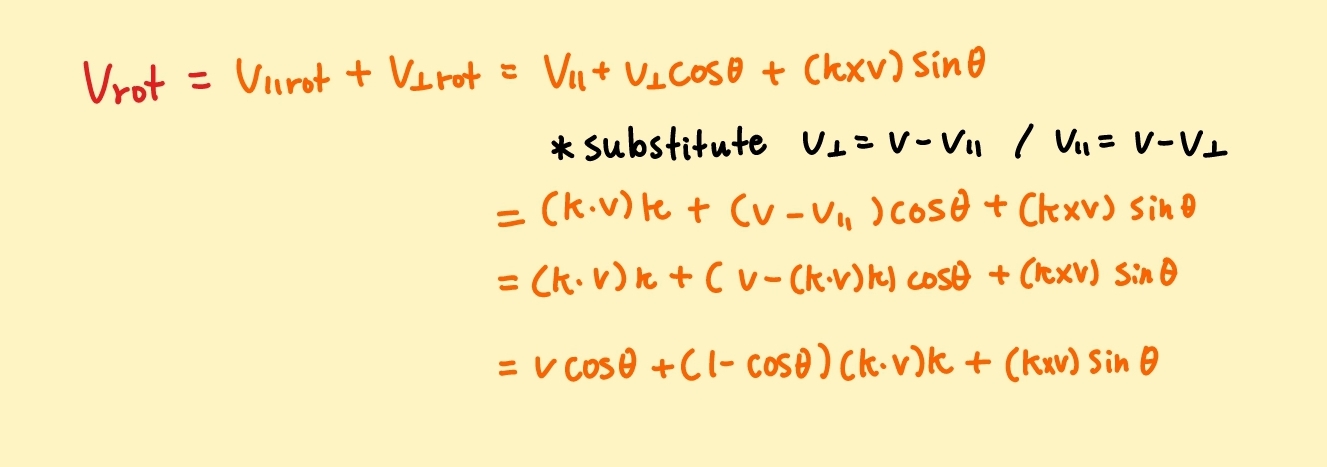 Vrot = V∥rot + V⊥rot = V∥ + V⊥cosθ + (k×v) sinθ
* substitute V⊥ = v - V∥ / V∥ = v - V⊥
= (k·v)k + (v - V∥)cosθ + (k×v) sinθ
= (k·v)k + (v - (k·v)k) cosθ + (k×v) sinθ
= v cosθ + (1 - cosθ)(k·v)k + (k×v) sinθ